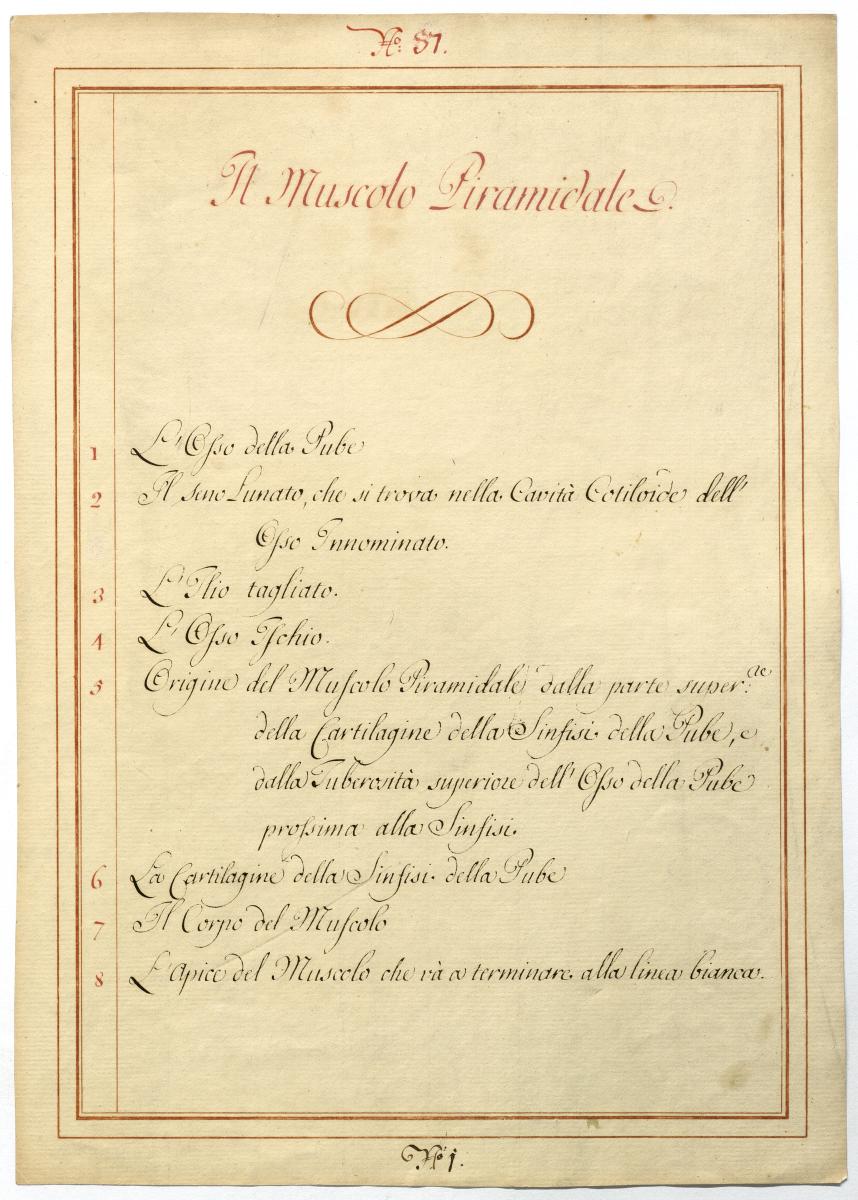 N.º 87.
Il Muscolo Piramidale.
1 L'Osso della Pube
2 Il seno Lunato, che si trova nella Cavità Cotiloide dell'
Osso Innominato.
3 L'Ilio tagliato.
4 L'Osso Ischio.
5 Origine del Muscolo Piramidale dalla parte super:re
della Cartilagine della Sinfisi della Pube, e
dalla Tuberosità superiore dell'Osso della Pube
prossima alla Sinfisi.
6 La Cartilagine della Sinfisi della Pube
7 Il Corpo del Muscolo
8 L'Apice del Muscolo che và a terminare alla linea bianca.
Nº 1.